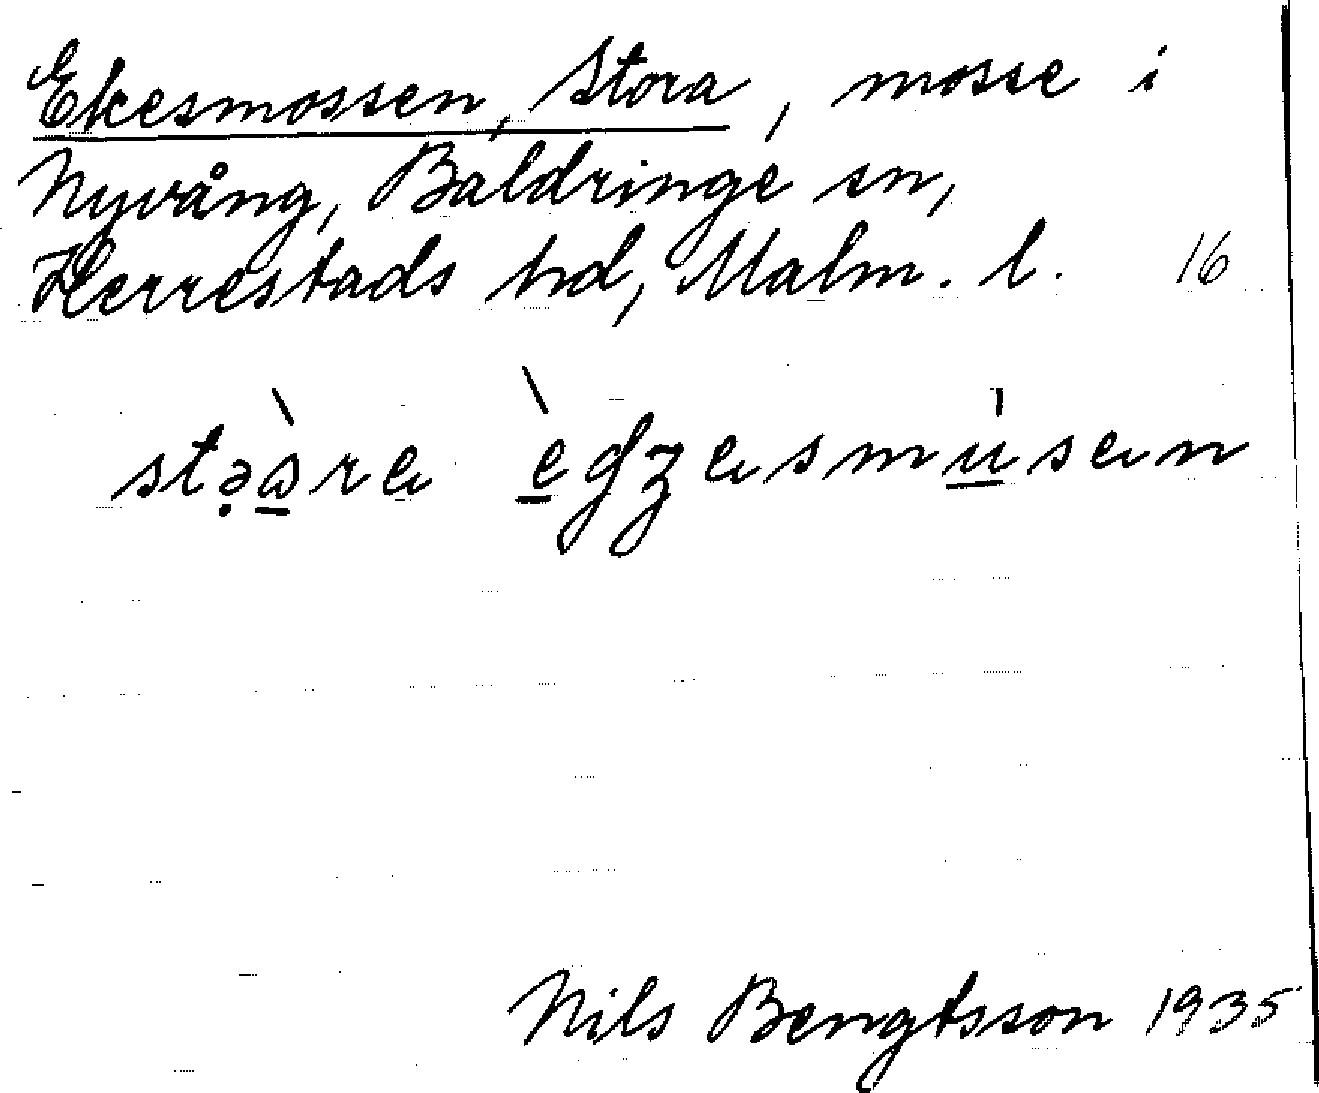 Ekesmossen, Stora, mosse i
Nyvång, Baldringe sn,
Herrestads hd, Malm. l. 16
Nils Bengtsson 1935